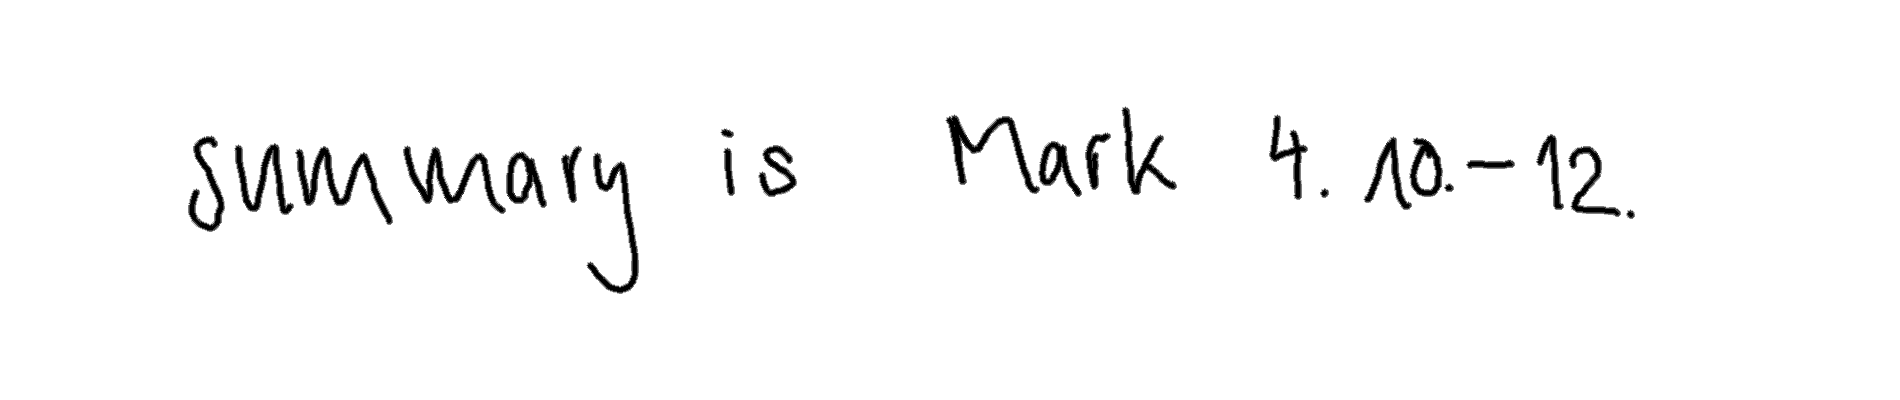 summary is Mark 4. 10.-12.